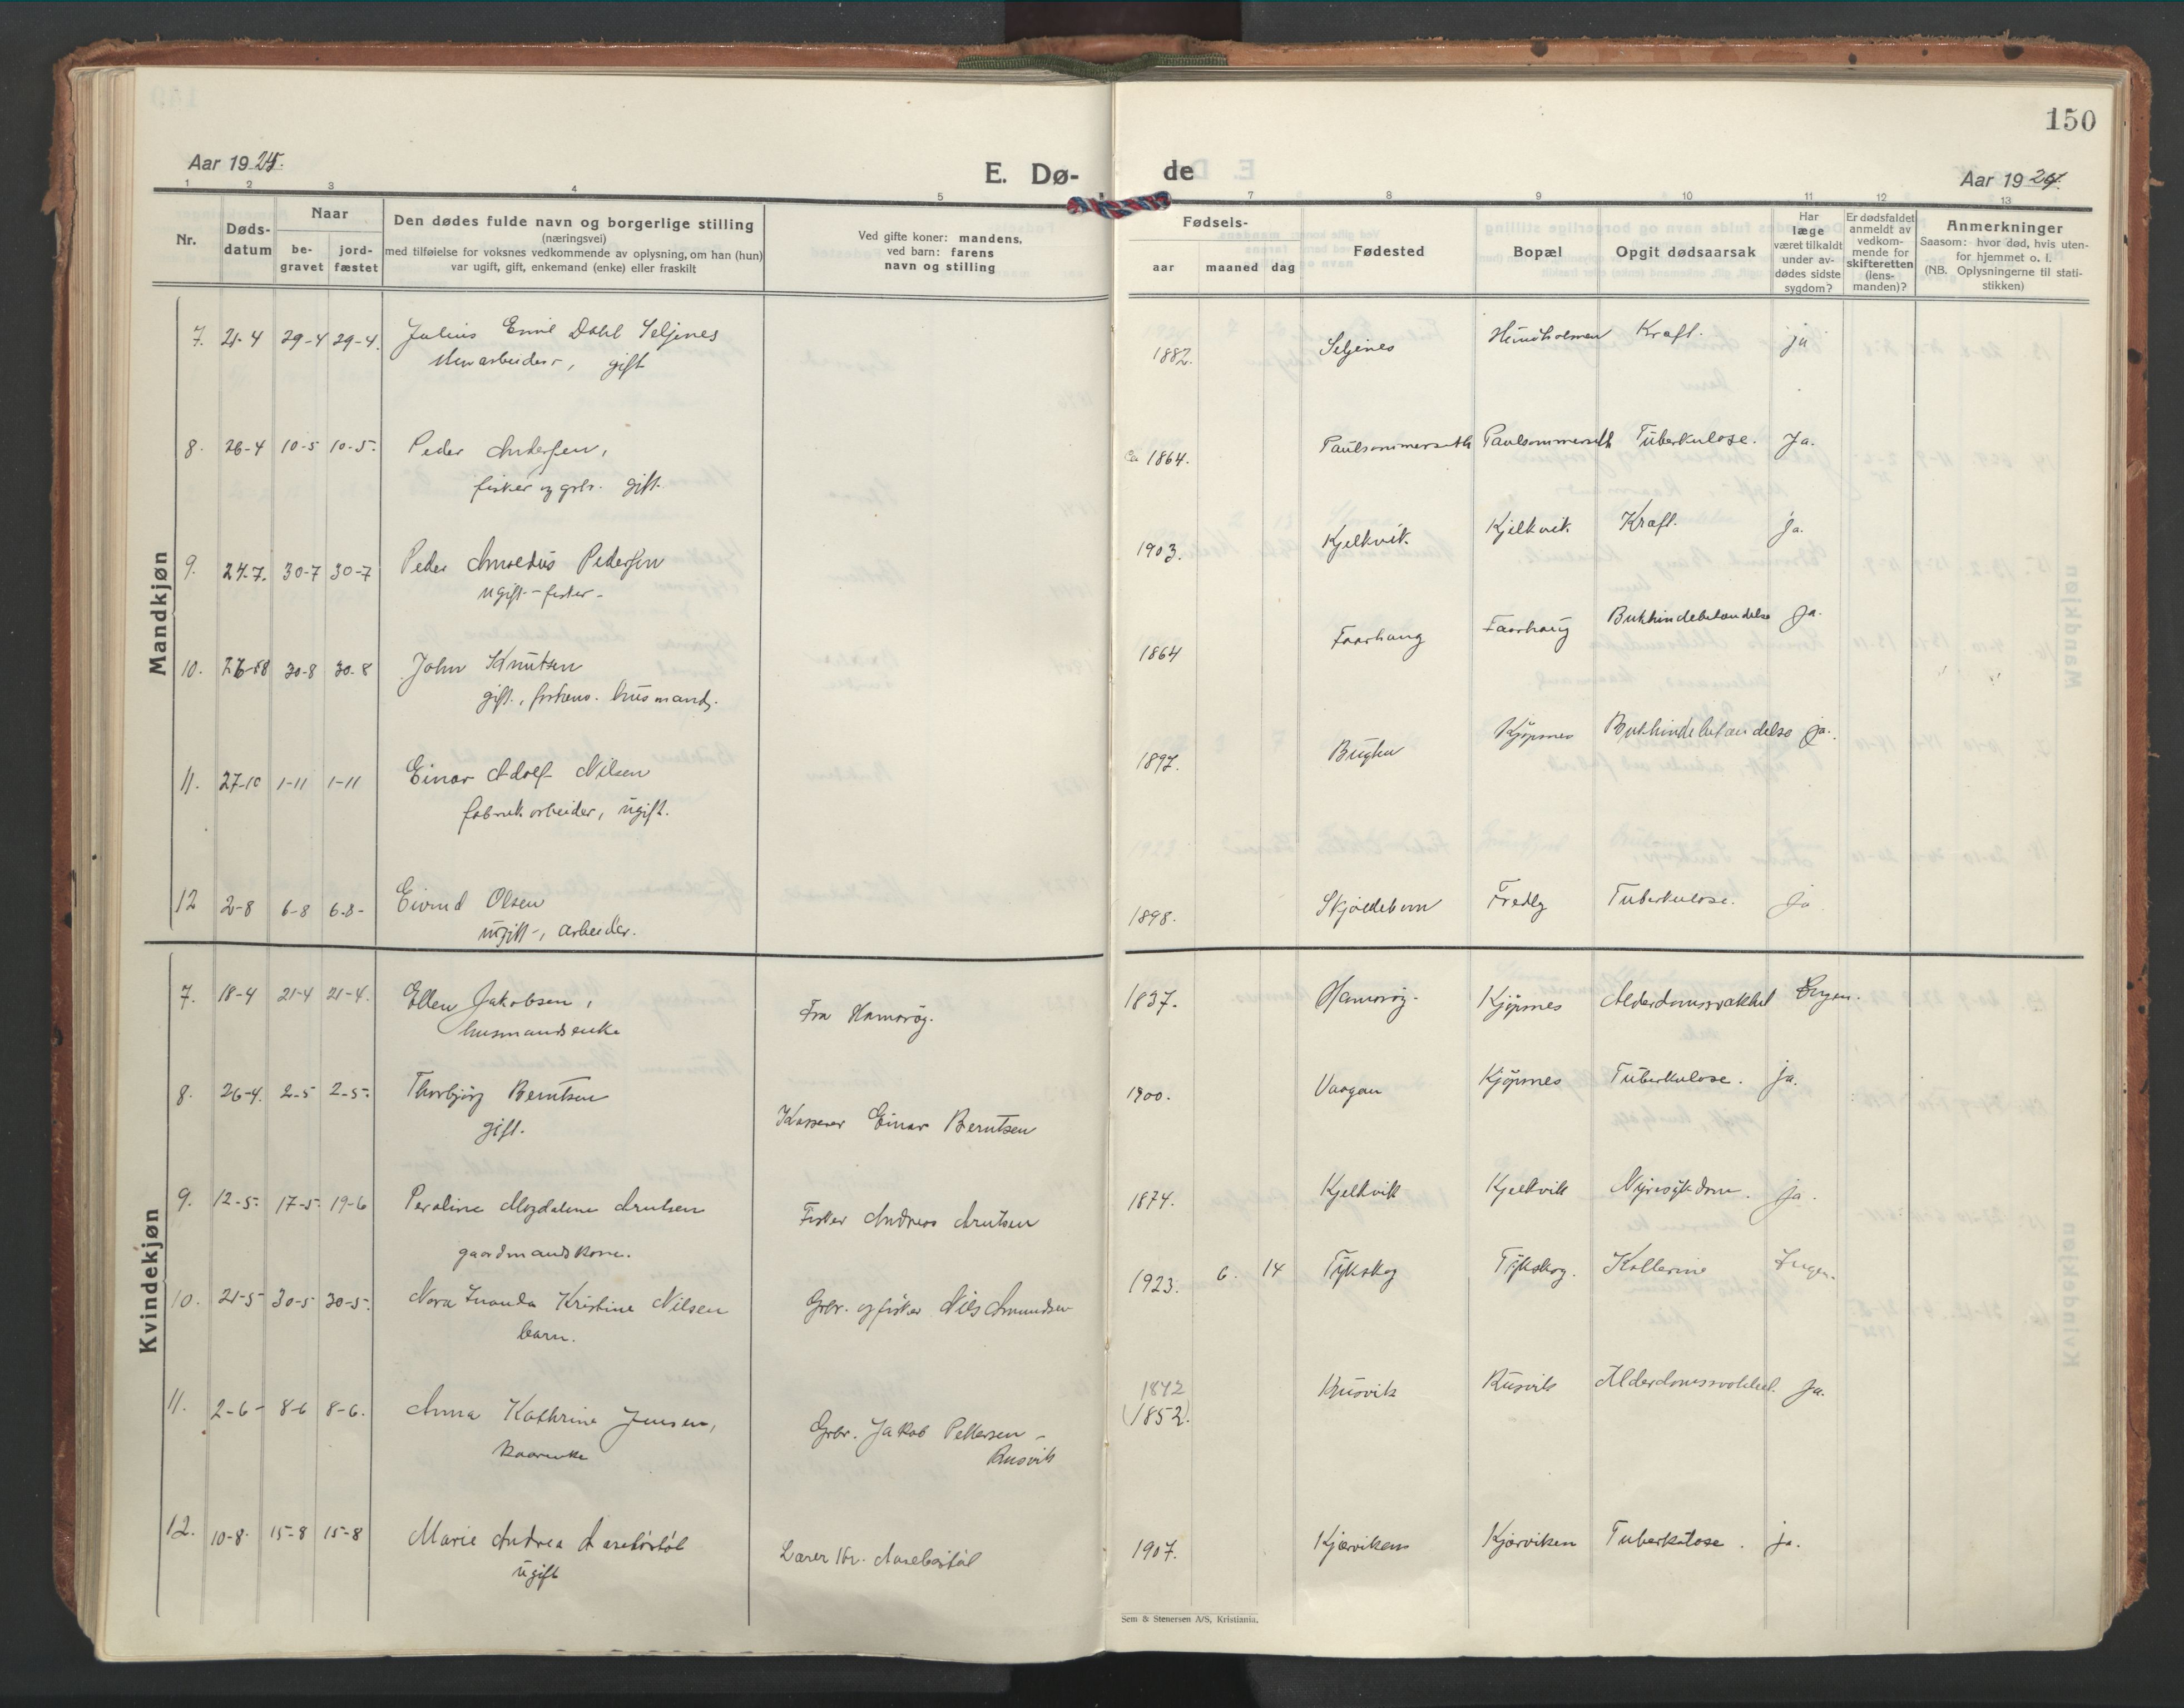 150
Aar 1924.
E. Dø-
de
Aar 1924.
1 2 3 4 5 7 8 9 10 11 12 13
Nr.
Døds-
datum
Naar
be-
gravet
jord-
fæstet
Den dødes fulde navn og borgerlige stilling
(næringsvei)
med tilføielse for voksnes vedkommende av oplysning, om han (hun)
var ugift, gift, enkemand (enke) eller fraskilt
Ved gifte koner: mandens,
ved barn: farens
navn og stilling
Fødsels-
aar maaned dag
Fødested
Bopæl
Opgit dødsaarsak
Har
læge
været tilkaldt
under av-
dødes sidste
sygdom?
Er dødsfaldet
anmeldt av
vedkom-
mende for
skifteretten
(lens-
manden)?
Anmerkninger
Saasom: hvor død, hvis uten-
for hjemmet o. l.
(NB. Oplysningerne til stati-
stikken)
Mandkjøn
7. 21-4 29-4 29-4. Julius Emil Dahl Seljenes 1882. Seljenes Kraft. ja
arbeider, gift
8. 26-4 10-5 10-5. Peder Andersen, ca 1864. Paulsommerseth Paulsommerseth Tuberkulose. Ja.
fisker og gbr. gift.
9. 24-7. 30-7 30-7 Peder Arnoldus Pedersen 1903. Kjelkvik. Kjelkvik. Kraft. ja.
ugift - fisker -
10. 30-8 30-8 John Knutsen 1864 Faarhaug Faarhaug Bukhindebetændelse Ja.
gift., husmand.
11. 27-10 1-11 1-11 Einar Adolf Nilsen 1897. Kjøpsnes Bukhindebetændelse ja.
fabrikarbeider, ugift.
12 2-8 6-8 6-8- Eivind Olsen 1898. Fredly Tuberkulose. Ja
ugift-, arbeider.
Kvindekjøn
7. 18-4 21-4 21-4. Ellen Jakobsen, Fra Hamarøy. 1837. Hamarøy. Kjøpsnes Alderdomssvakhet Ingen.
husmandsenke
8. 26-4. 2-5 2-5. Thorbjørg Berntsen Kasserer Einar Berntsen 1900. Vaagan Kjøpsnes Tuberkulose. ja.
gift.
9. 12-5. 17-5. 19-6 Peraline Magdalene Arntsen Fisker Andreas Arntsen 1874. Kjelkvik Kjelkvik Nyresykdom. ja.
gaardmandskone.
10. 21-5 30-5 30-5. Nora Kristine Nilsen Gbr. og fisker Nils Amundsen 1923. 6. 14 Tykskog Tykskog. Ingen.
barn.
11. 2-6- 8-6 8-6. Anna Kathrine Jensen, Gbr. Jakob Pettersen - 1842 Rusvik Rusvik Alderdomssvakhet. Ja.
Kaarenke Rusvik (1852).
12. 10-8. 15-8 15-8 Marie Andrea Aasebøstøl Lærer Kr. Aasebøstøl 1907. Kjærviken Kjærviken Tuberkulose. ja.
ugift
Sem & Stenersen A/S, Kristiania.